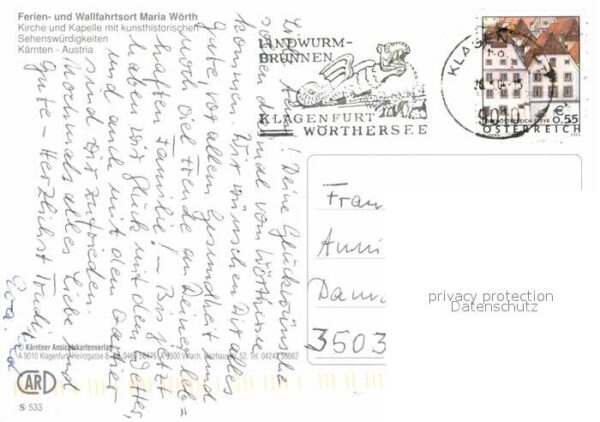 Ferien- und Wallfahrtsort Maria Wörth
Kirche und Kapelle mit kunsthistorischen
Sehenswürdigkeiten
Kärnten - Austria
LINDWURM-
BRUNNEN
KLAGENFURT
WÖRTHERSEE
KLAGEN
€ 0.55
ÖSTERREICH
! Deine Glückwünsche
sollen diesmal vom Wörthersee
kommen. Wir wünschen Dir alles
Gute, vor allem Gesundheit und
noch viel Freude an Deiner leb=
haften Familie! - Bis jetzt
haben wir Glück mit dem Wetter,
und auch mit dem Quartier
sind wir zufrieden.
Nochmals alles Liebe und
Gute - Herzlichst Trude
Frau
Anni
3503
privacy protection
Datenschutz
© Kärntner Ansichtskartenverlag
A 9010 Klagenfurt
CARD
S 533